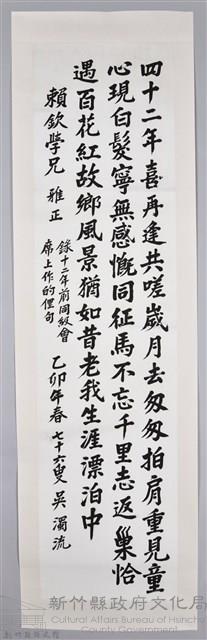 四十二年喜再逢共嗟歲月去匆匆拍肩重見童
心現白髮寧無感慨同征馬不忘千里志返巢恰
遇百花紅故鄉風景猶如昔老我生涯漂泊中
賴欽學兄 雅正
錄十二年前同級會
席上作的俚句
乙卯年春七十六叟 吳濁流
新竹縣政府文化局
Cultural Affairs Bureau of Hsinchu
County Government